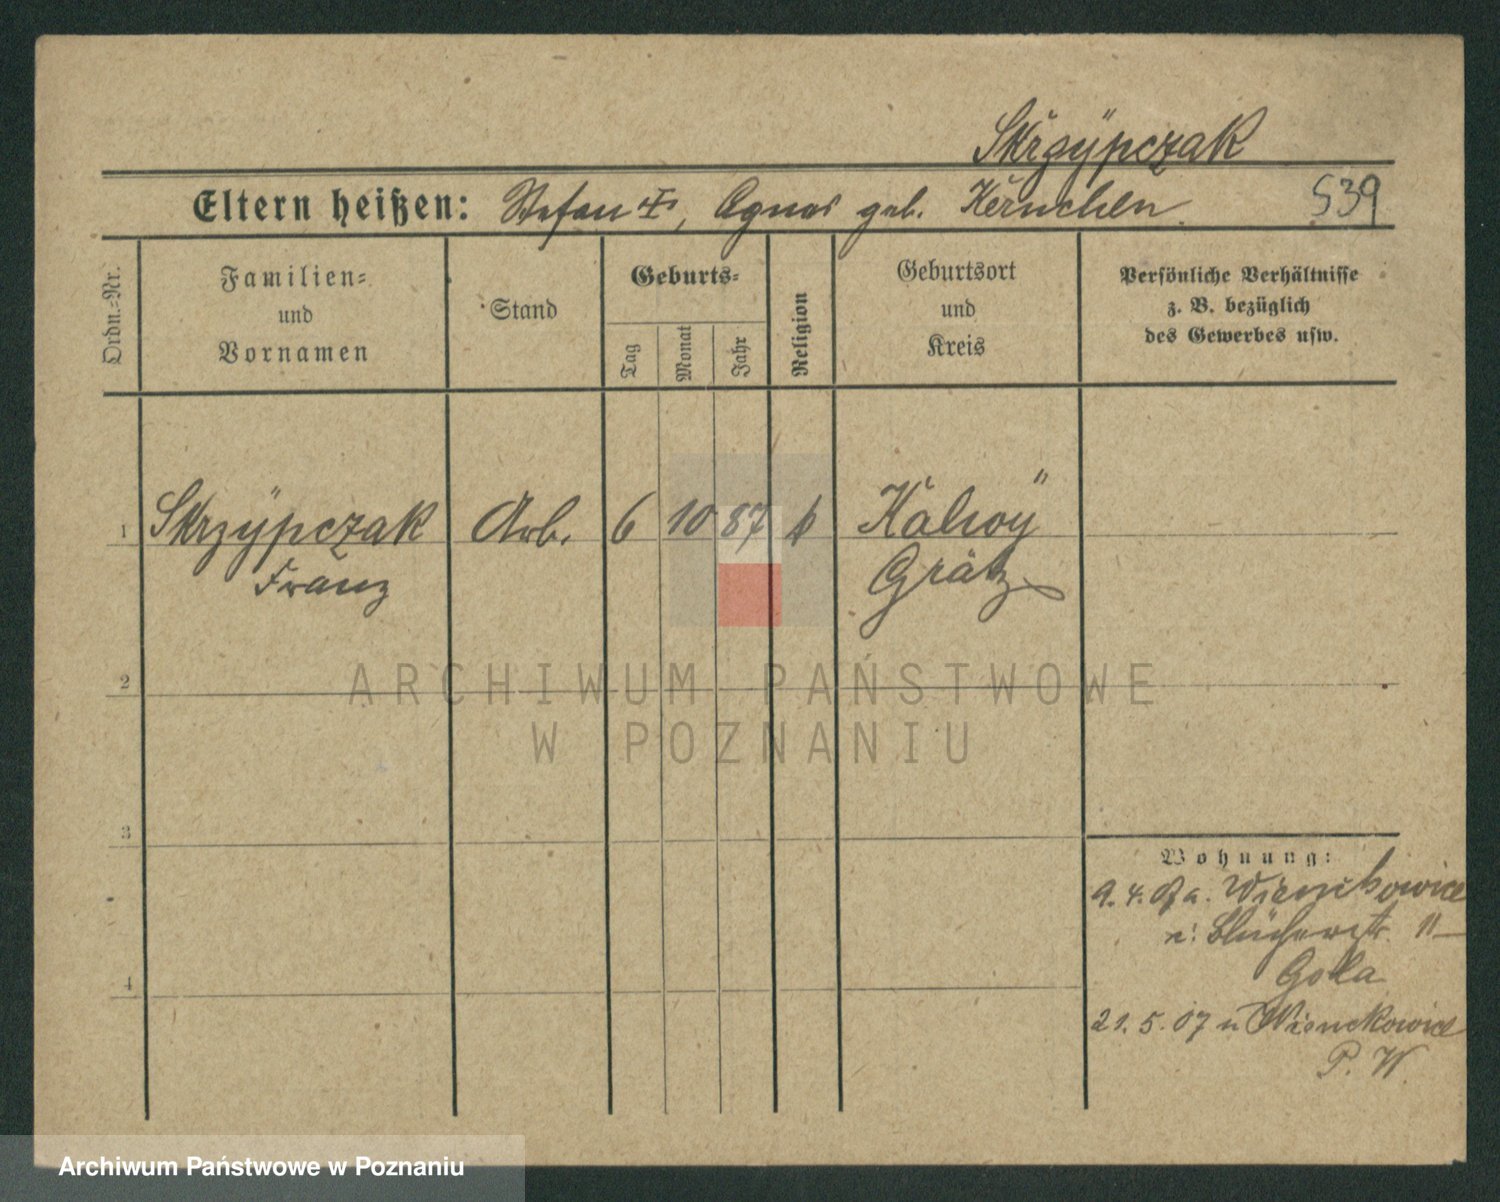 Skrzÿpczak
Eltern heißen: Stefan †, Agnes geb. Kernchen 539
Ordn.=Nr.
Familien=
und
Vornamen
Stand
Geburts=
Tag
Monat
Jahr
Religion
Geburtsort
und
Kreis
Persönliche Verhältnisse
z. B. bezüglich
des Gewerbes usw.
1 Skrzÿpczak Arb. 6 10 87 k
Franz Grätz
2
3
4
Wohnung:
9. 4. 07 a.
n. Blücherstr. 11
Gola
21. 5. 07 n Wienckowice
P. W
ARCHIWUM PAŃSTWOWE
W POZNANIU
Archiwum Państwowe w Poznaniu